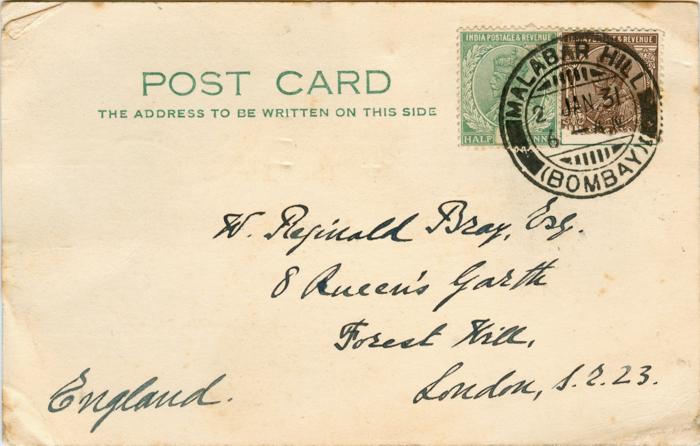 INDIA POSTAGE & REVENUE
HALF
POST CARD
THE ADDRESS TO BE WRITTEN ON THIS SIDE
MALABAR HILL
2 JAN. 31
6
(BOMBAY)
W. Reginald Bray, Esq.
8 Queen's Garth
Forest Hill,
London, S.E. 23.
England.